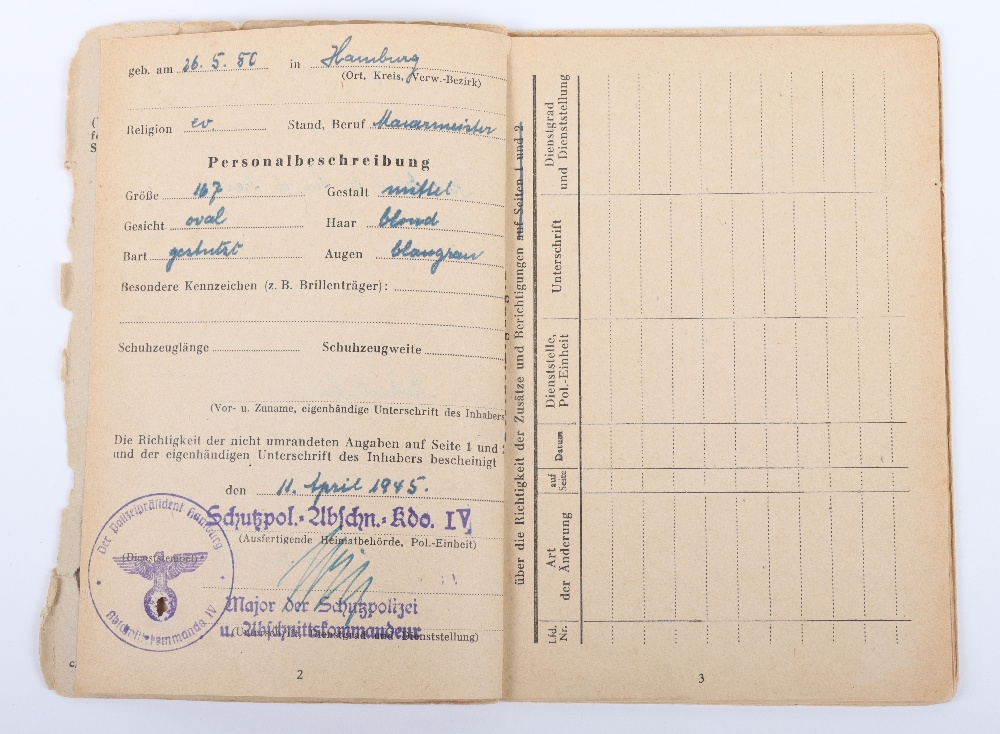 geb. am 26. 5. 80 in Hamburg
(Ort, Kreis, Verw.-Bezirk)
Religion ev. Stand, Beruf Maurermeister
Personalbeschreibung
Größe 167 Gestalt mittel
Gesicht oval Haar blond
Bart gestutzt Augen blaugrau
Besondere Kennzeichen (z. B. Brillenträger):
Schuhzeuglänge Schuhzeugweite
(Vor- u. Zuname, eigenhändige Unterschrift des Inhabers
Die Richtigkeit der nicht umrandeten Angaben auf Seite 1 und
und der eigenhändigen Unterschrift des Inhabers bescheinigt
den 11. April 1945.
Schutzpol.-Abschn.-Kdo. IV
(Ausfertigende Heimatbehörde, Pol.-Einheit)
Der Polizeipräsident Hamburg
(Dienststempel)
Abschnittskommando IV
Major der Schutzpolizei
u. Abschnittskommandeur
(Unterschrift, Dienstgrad und Dienststellung)
2
über die Richtigkeit der Zusätze und Berichtigungen auf Seiten 1 und 2
Lfd. Nr.
Art der Änderung
auf Seite
Datum
Dienststelle, Pol.-Einheit
Unterschrift
Dienstgrad und Dienststellung
3